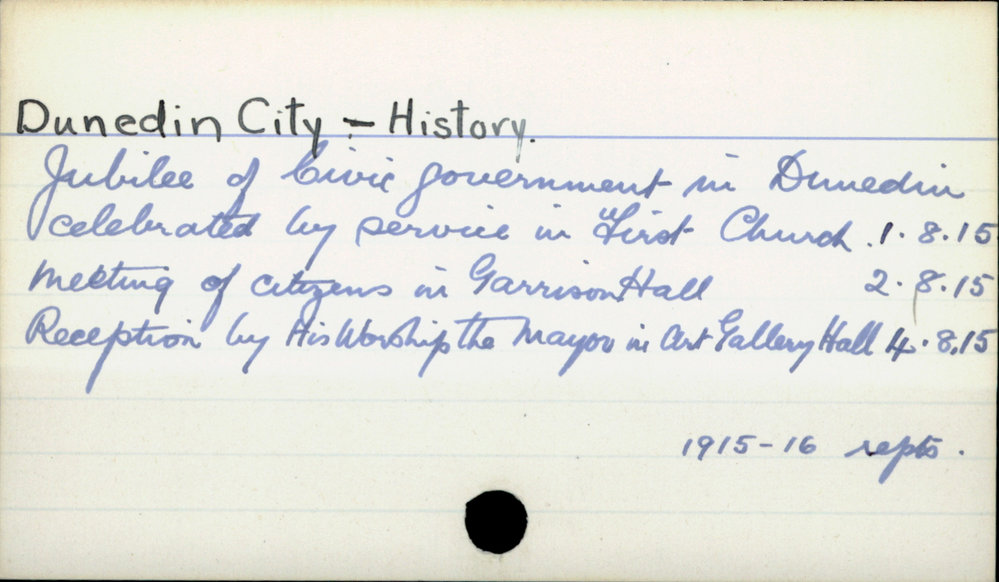 Dunedin City - History.
Jubilee of Civic government in Dunedin
celebrated by service in First Church 1.8.15
Meeting of citizens in Garrison Hall 2.8.15
Reception by His Worship the Mayor in Art Gallery Hall 4.8.15
1915-16 repts.